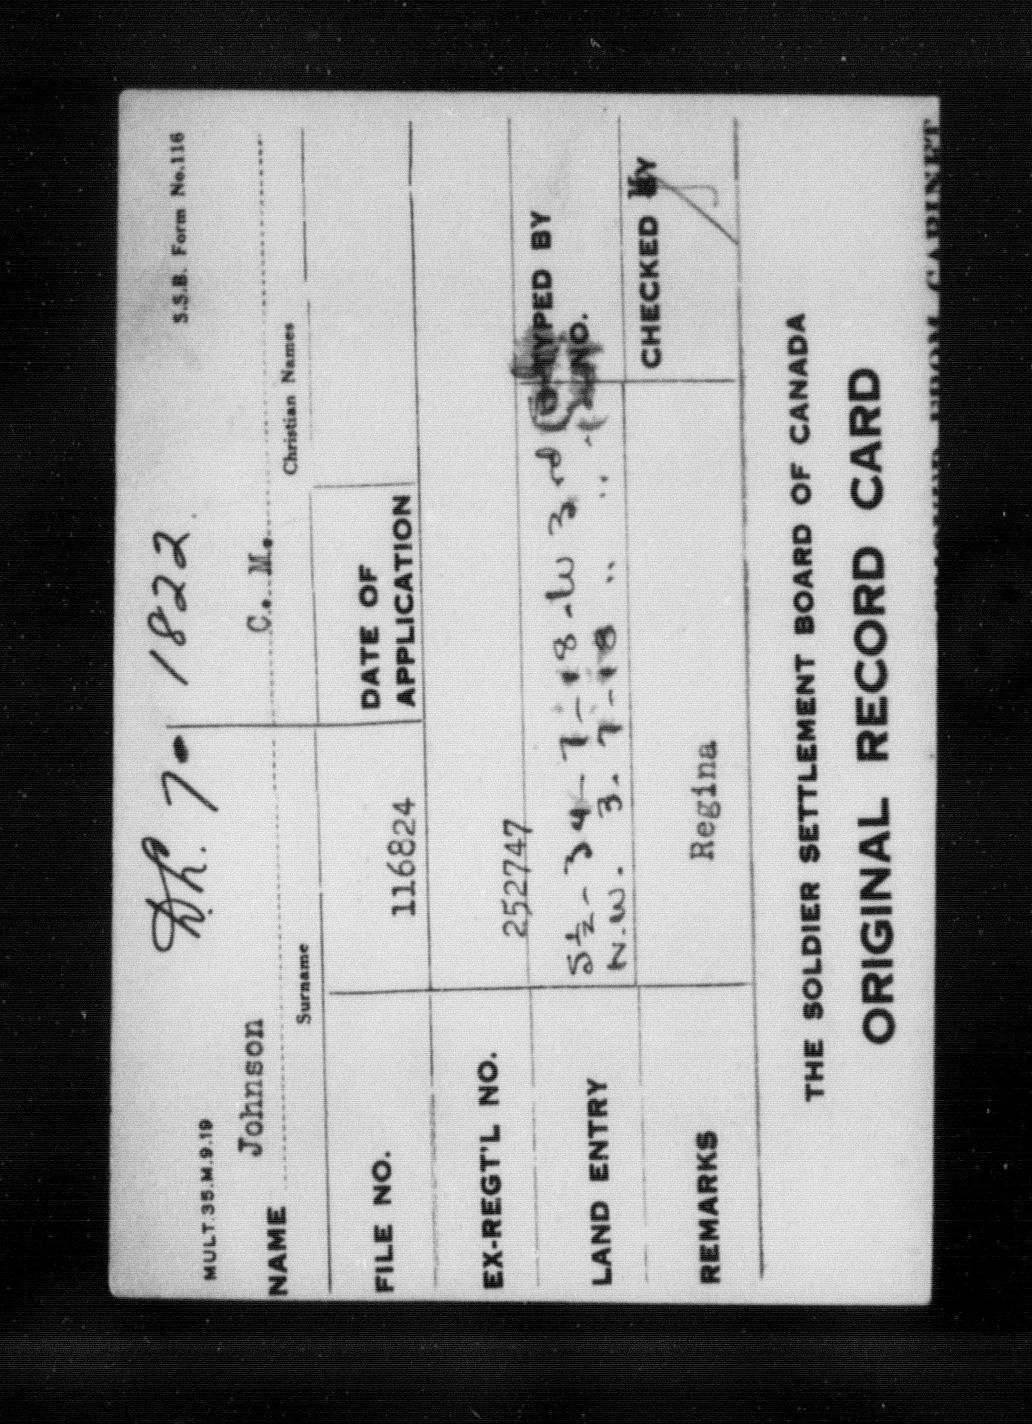 MULT.35.M.9.19
S.S.B. Form No.116
7 - 1822
NAME Johnson C. M.
Surname Christian Names
FILE NO. 116824 DATE OF APPLICATION
EX-REGT'L NO. 252747
LAND ENTRY S½-34-7-18-W 3rd TYPED BY
N.W. 3-7-18 " " " NO.
CHECKED BY
REMARKS Regina
THE SOLDIER SETTLEMENT BOARD OF CANADA
ORIGINAL RECORD CARD
FROM CABINET